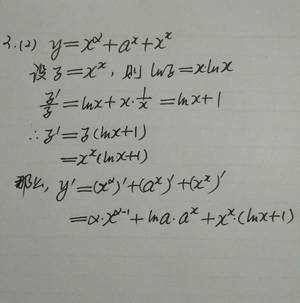 2.(2) y=x^α+a^x+x^x
设z=x^x, 则lnz=x·lnx
z'/z=lnx+x·1/x=lnx+1
∴z'=z(lnx+1)
=x^x(lnx+1)
那么, y'=(x^α)'+(a^x)'+(x^x)'
=α·x^(α-1)+lna·a^x+x^x·(lnx+1)